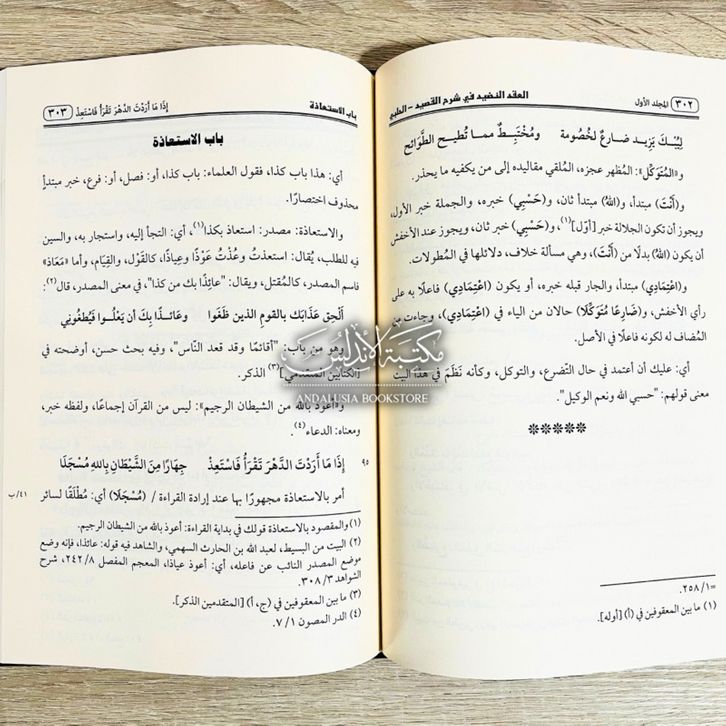 ٣٠٢ المجلد الأول العقد النضيد في شرح القصيد - الحلبي
لِيُبْكَ يَزِيد ضارعٌ لخُصُومة ومُخْتَبِطٌ مما تُطيح الطَّوَائح
و«المُتَوَكِّل»: المُظهر عجزه، المُلقي مقاليده إلى من يكفيه ما يحذر.
و(أَنْتَ) مبتدأ، و(اللهُ) مبتدأ ثان، و(حَسْبِي) خبره، والجملة خبر الأول،
ويجوز أن تكون الجلالة خبر [أوّل](١)، و(حَسْبِي) خبر ثان، ويجوز عند الأخفش
أن يكون (اللهُ) بدلًا من (أَنْتَ)، وهي مسألة خلاف، دلائلها في المُطولات.
و(اعْتِمَادِي) مبتدأ، والجار قبله خبره، أو يكون (اعْتِمَادِي) فاعلًا به على
رأي الأخفش، و(ضَارِعًا مُتَوَكِّلًا) حالان من الياء في (اعْتِمَادِي)، وجاءت من
المُضاف له لكونه فاعلًا في الأصل.
أي: عليك أن أعتمد في حال التّضرع، والتوكل، وكأنه نَظَمَ في هذا البيت
معنى قولهم: "حسبي الله ونعم الوكيل".
*****
=١/ ٢٥٨.
(١) ما بين المعقوفين في (أ) [أوله].
باب الاستعاذة إِذَا مَا أَرَدْتَ الدَّهْرَ تَقْرَأُ فَاسْتَعِذْ ٣٠٣
باب الاستعاذة
أي: هذا باب كذا، فقول العلماء: باب كذا، أو: فصل، أو: فرع، خبر مبتدأ
محذوف اختصارًا.
والاستعاذة: مصدر: استعاذ بكذا(١)، أي: التجأ إليه، واستجار به، والسين
فيه للطلب، يُقال: استعذتُ وعُذْتُ عَوْذًا وعِياذًا، كالقَوْل، والقِيَام، وأما «مَعَاذ»
فاسم المصدر، كالمُقتل، ويقال: "عائذًا بك من كذا"، في معنى المصدر، قال(٢):
أَلْحِق عَذَابَك بالقومِ الذين طَغَوا وعَائذًا بكَ أن يَعْلُوا فيُطغُوني
وهو من باب: "أقائمًا وقد قعد الناس"، وفيه بحث حسن، أوضحته في
[الكتابين المتقدمي](٣) الذكر.
و«أعوذ بالله من الشيطان الرجيم»: ليس من القرآن إجماعًا، ولفظه خبر،
ومعناه: الدعاء(٤).
٩٥ إِذَا مَا أَرَدْتَ الدَّهْرَ تَقْرَأُ فَاسْتَعِذْ جِهَارًا مِنَ الشَّيْطَانِ بِاللهِ مُسْجَلَا
أمر بالاستعاذة مجهورًا بها عند إرادة القراءة / (مُسْجَلا) أي: مُطْلَقًا لسائر ٤١/ب
(١) والمقصود بالاستعاذة قولك في بداية القراءة: أعوذ بالله من الشيطان الرجيم.
(٢) البيت من البسيط، لعبد الله بن الحارث السهمي، والشاهد فيه قوله: عائذا، فإنه وضع
موضع المصدر النائب عن فاعله، أي: أعوذ عياذا، المعجم المفصل ٨/ ٢٤٢، شرح
الشواهد ٣/ ٣٠٨.
(٣) ما بين المعقوفين في (ج، أ) [المتقدمين الذكر].
(٤) الدر المصون ١/ ٧.
مكتبة الأندلس
ANDALUSIA BOOKSTORE